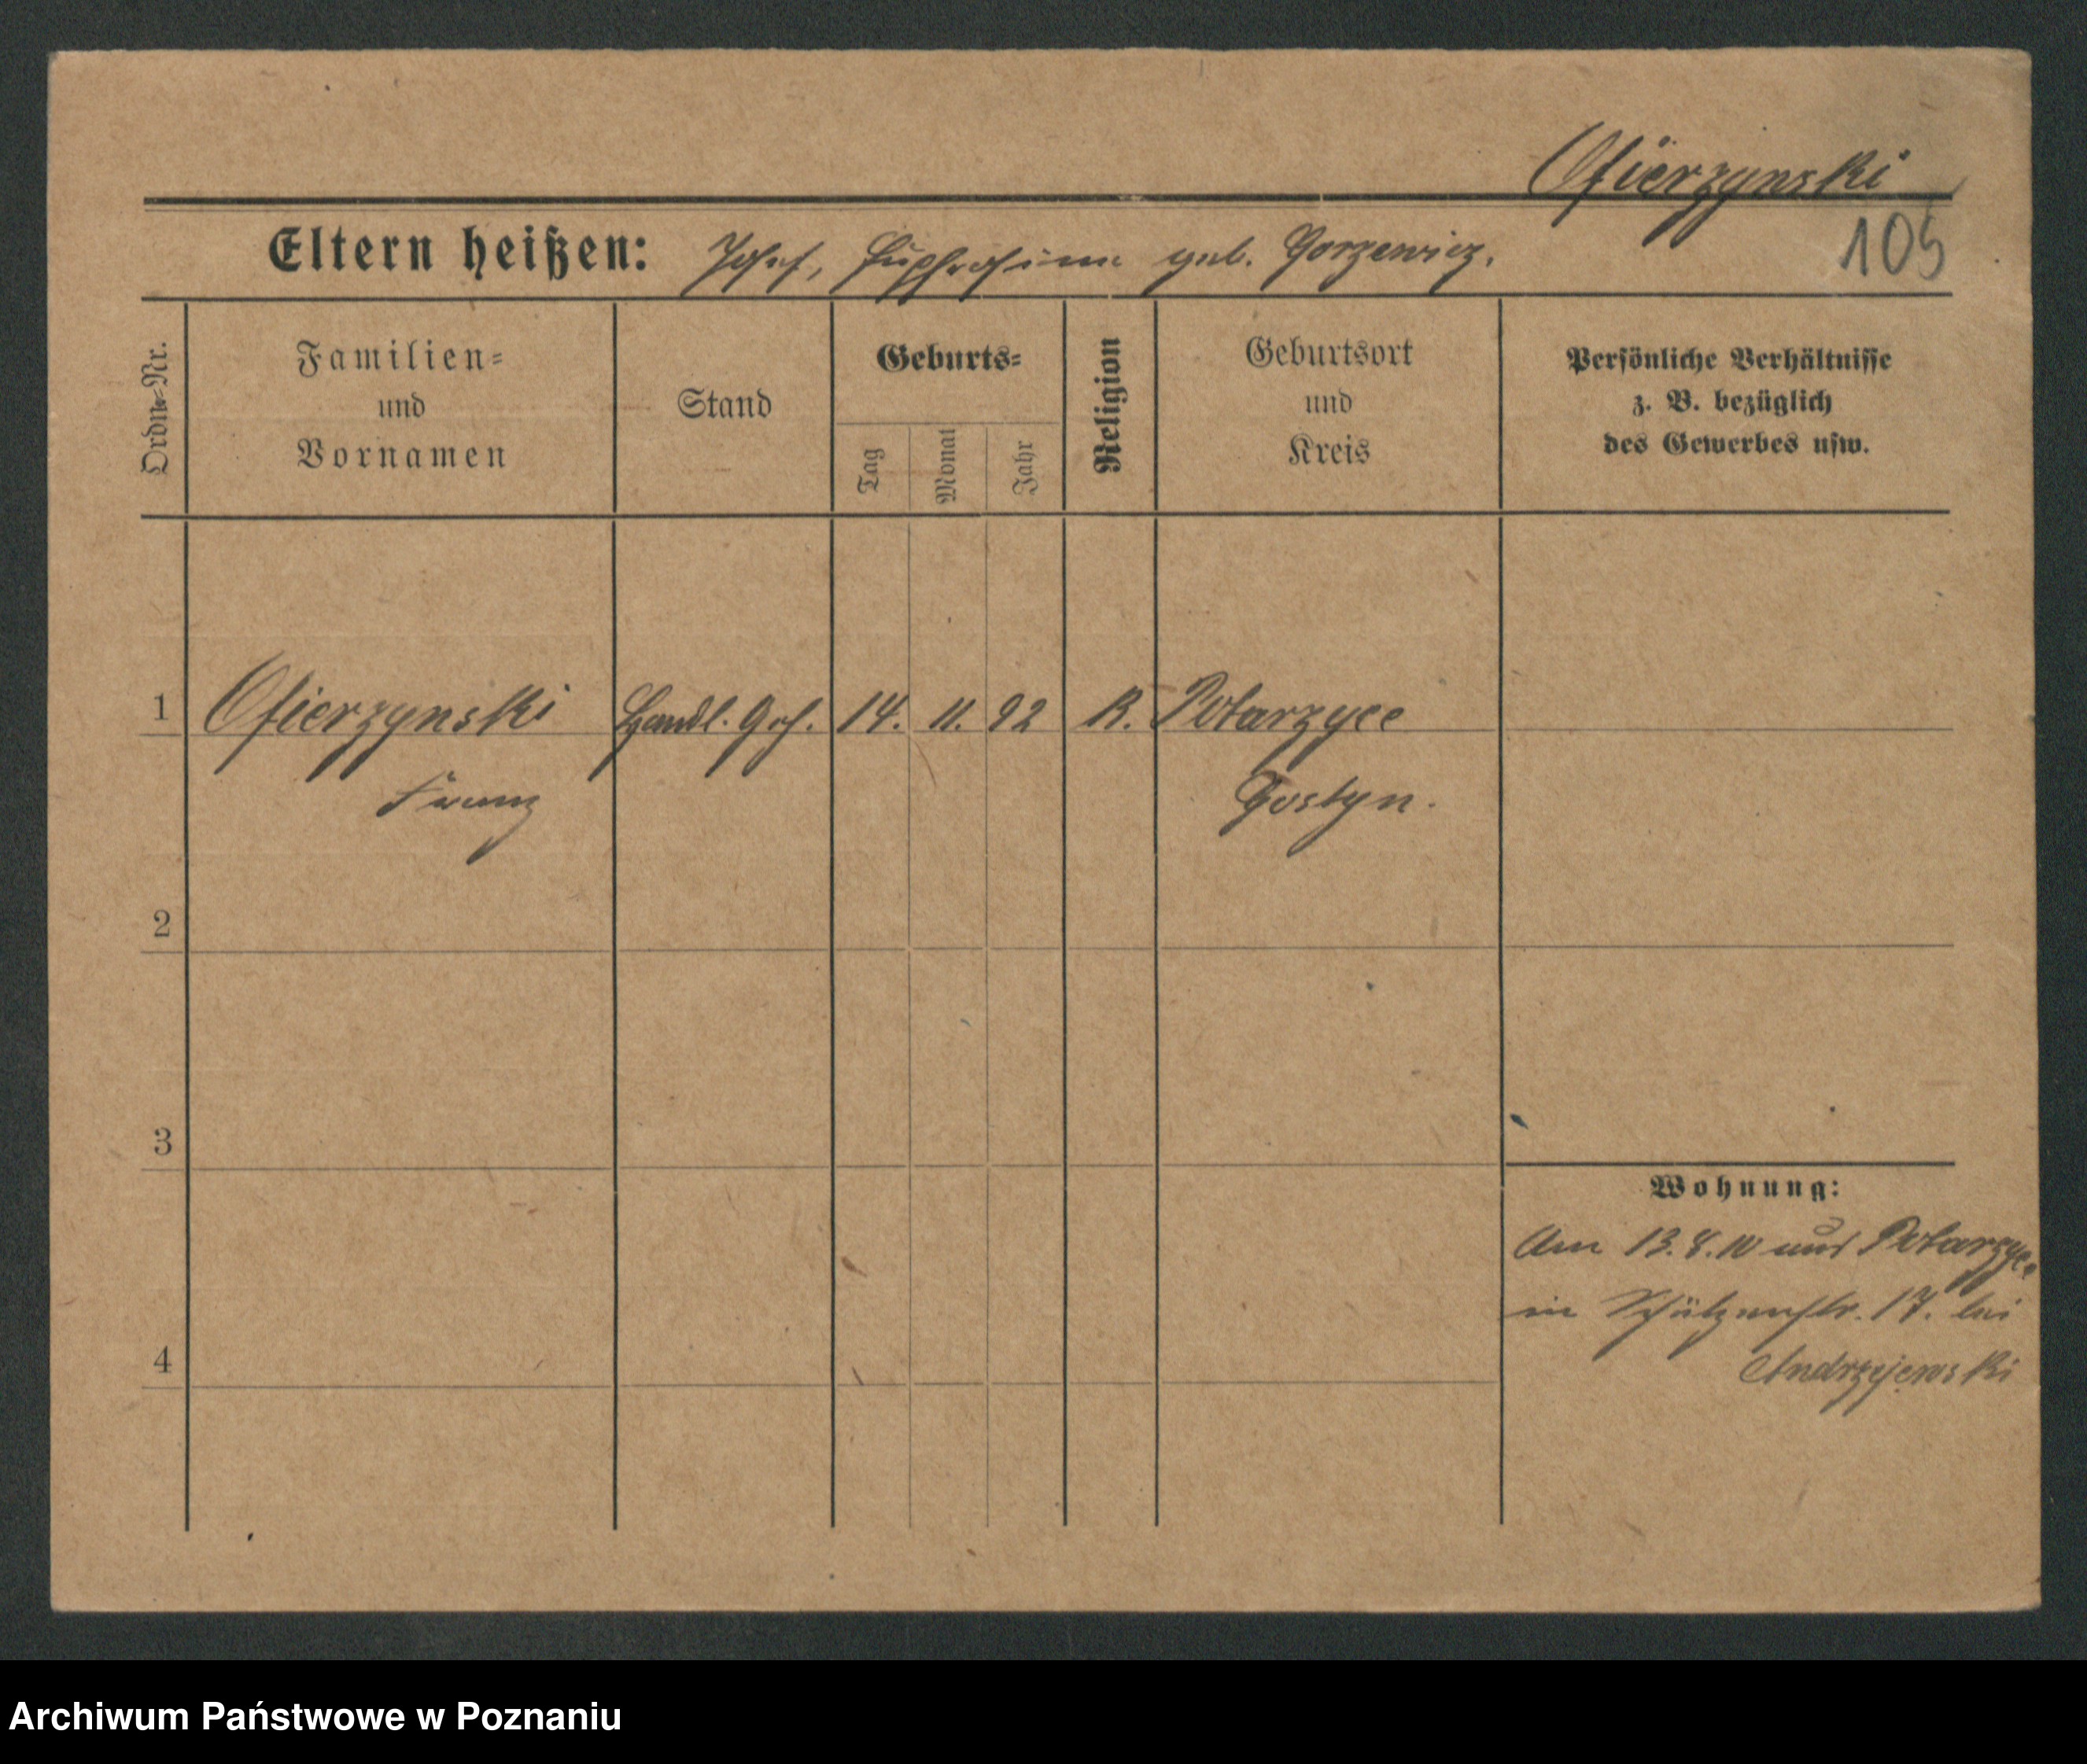 Ofierzynski
105
Eltern heißen: Josef, Euphrosine geb. Gorzewicz.
Ordn.-Nr.
Familien- und Vornamen
Stand
Geburts-
Tag
Monat
Jahr
Religion
Geburtsort und Kreis
Persönliche Verhältnisse
z. B. bezüglich
des Gewerbes usw.
1 Ofierzynski Handl. Geh. 14. 11. 92 K. Potarzyce
Franz Gostyn.
2
3
Wohnung:
Am 13.8.10 aus Potarzyce
in Schützenstr. 17. bei
4
Andrzejewski
Archiwum Państwowe w Poznaniu